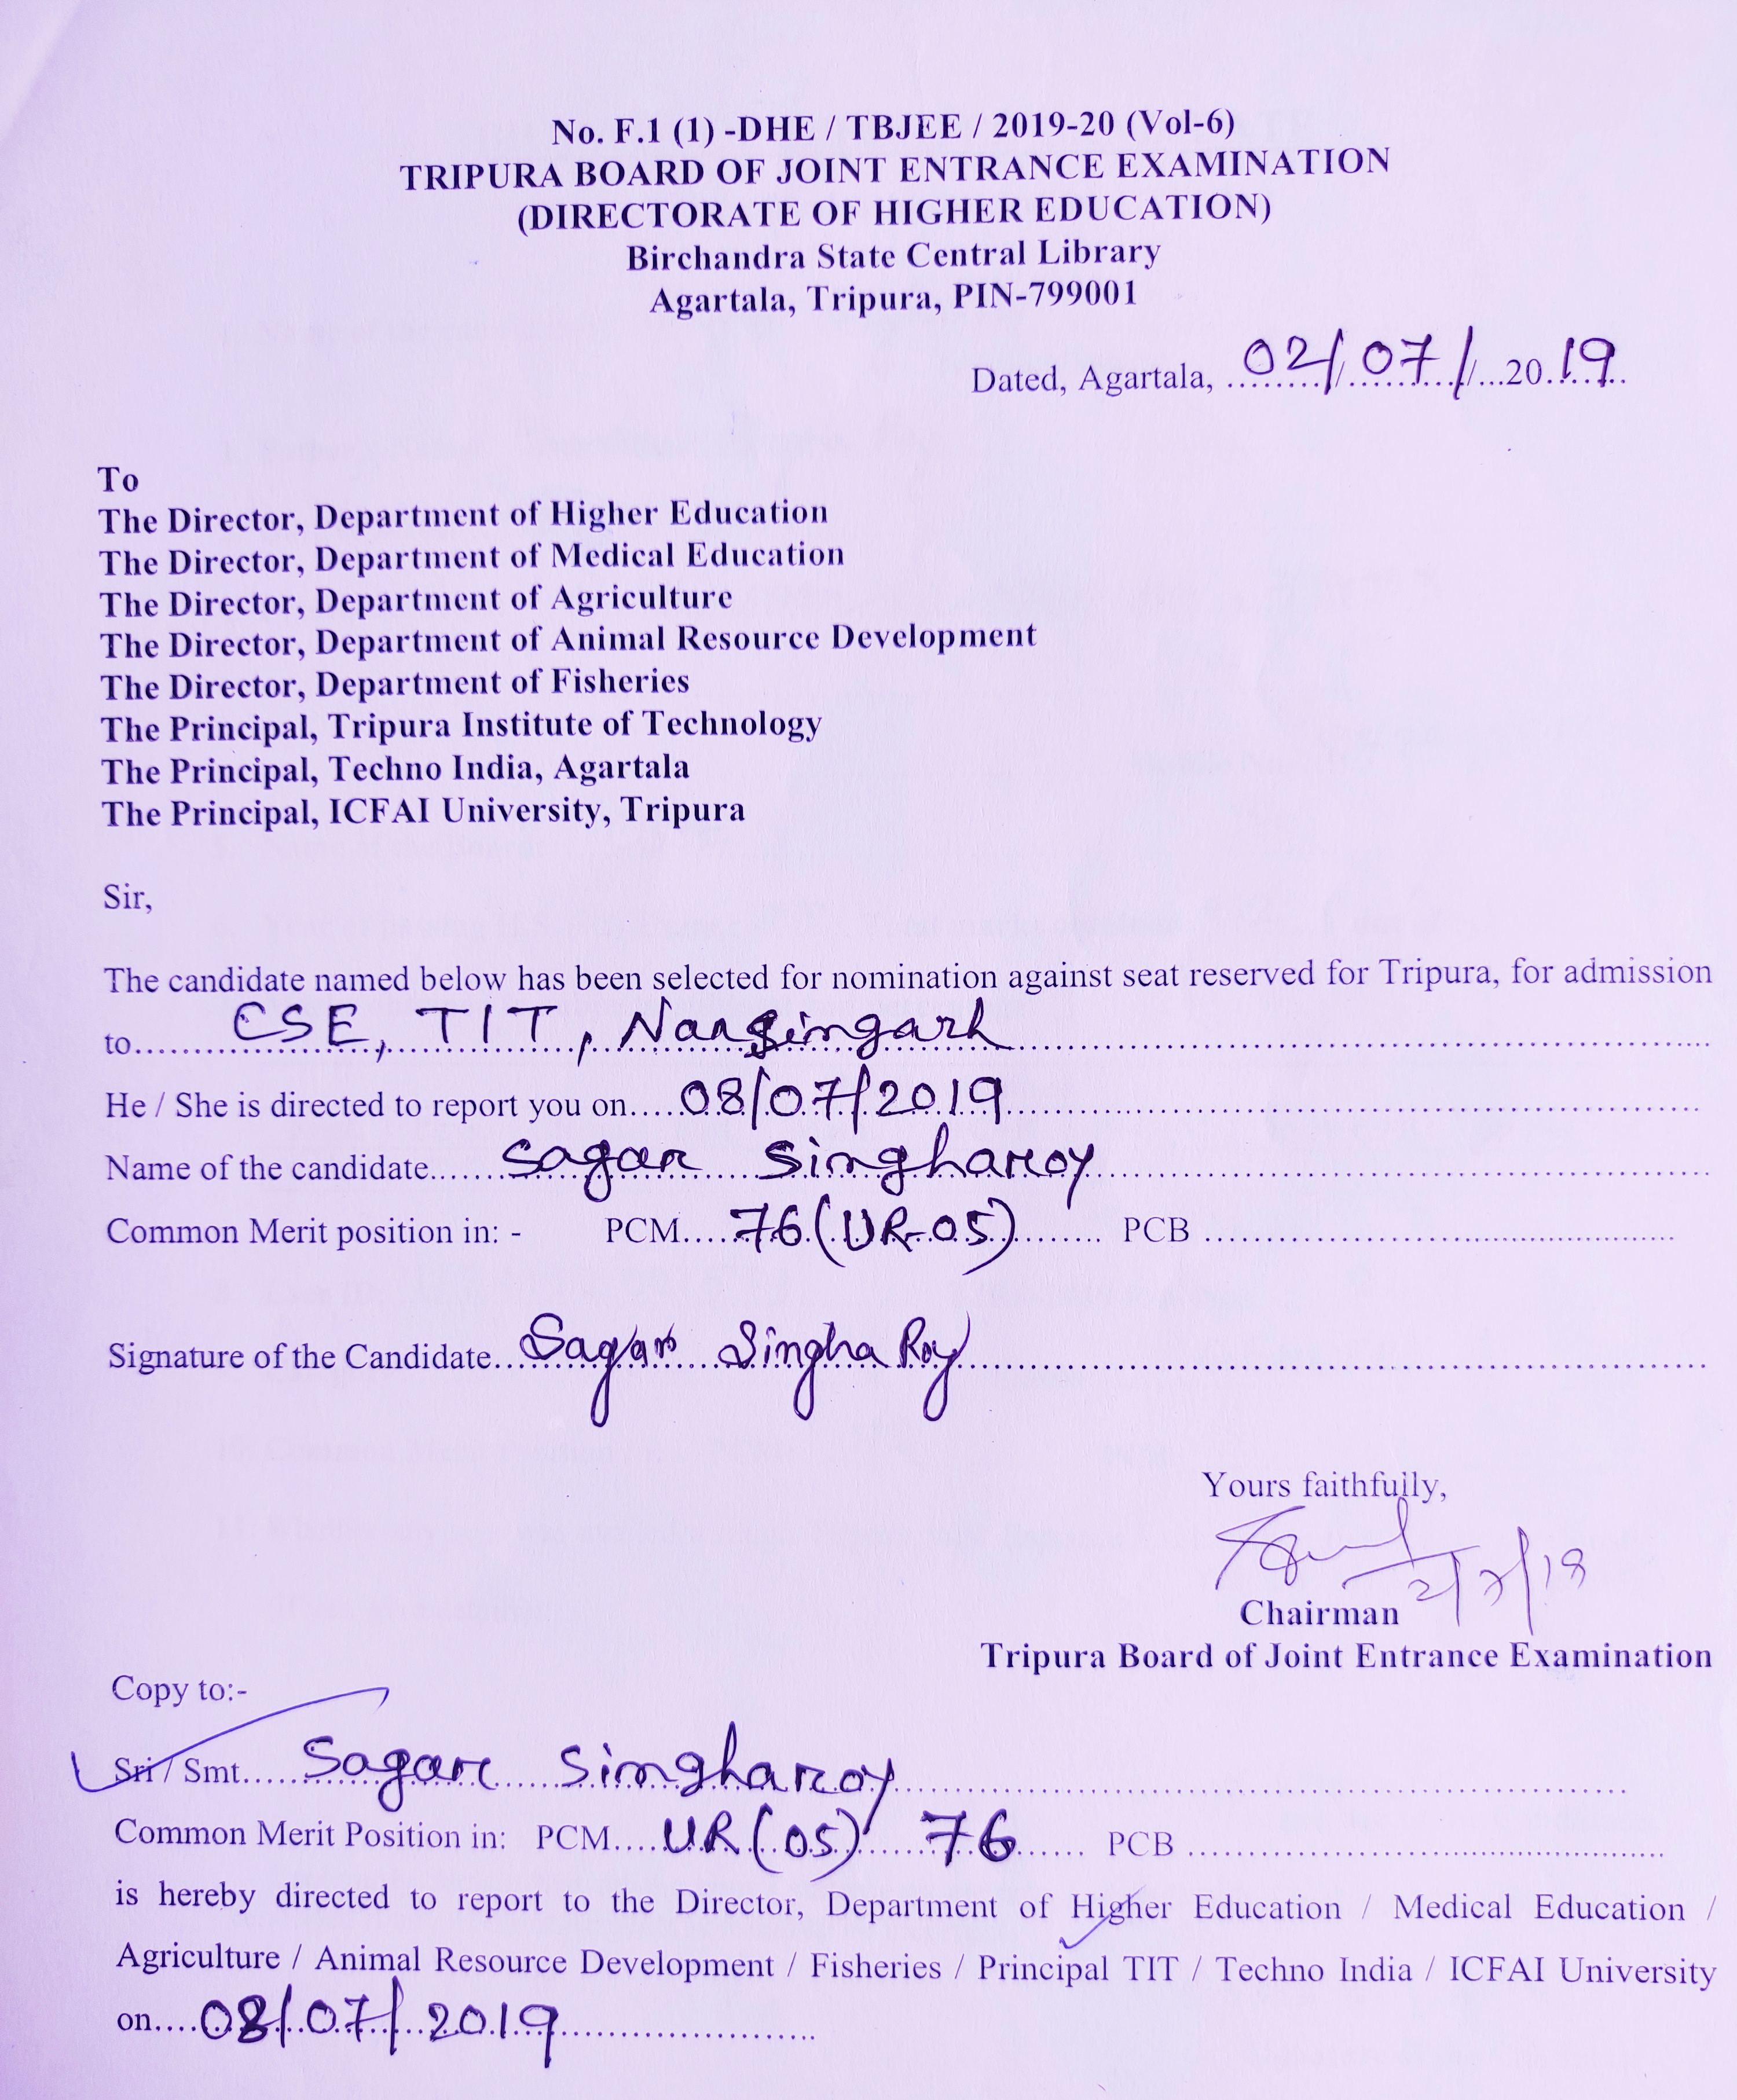 No. F.1 (1) -DHE / TBJEE / 2019-20 (Vol-6)
TRIPURA BOARD OF JOINT ENTRANCE EXAMINATION
(DIRECTORATE OF HIGHER EDUCATION)
Birchandra State Central Library
Agartala, Tripura, PIN-799001
Dated, Agartala, 02/07/2019
To
The Director, Department of Higher Education
The Director, Department of Medical Education
The Director, Department of Agriculture
The Director, Department of Animal Resource Development
The Director, Department of Fisheries
The Principal, Tripura Institute of Technology
The Principal, Techno India, Agartala
The Principal, ICFAI University, Tripura
Sir,
The candidate named below has been selected for nomination against seat reserved for Tripura, for admission
to..... CSE, TIT, Narsingarh
He / She is directed to report you on..... 08/07/2019
Name of the candidate..... Sagar Singharoy
Common Merit position in: - PCM.... 76 (UR-05) ..... PCB .....
Signature of the Candidate... Sagar Singha Roy
Yours faithfully,
2/7/19
Chairman
Tripura Board of Joint Entrance Examination
Copy to:-
Sri / Smt..... Sagar Singharoy
Common Merit Position in: PCM.... UR (05) 76 ..... PCB .....
is hereby directed to report to the Director, Department of Higher Education / Medical Education /
Agriculture / Animal Resource Development / Fisheries / Principal TIT / Techno India / ICFAI University
on.... 08/07/2019